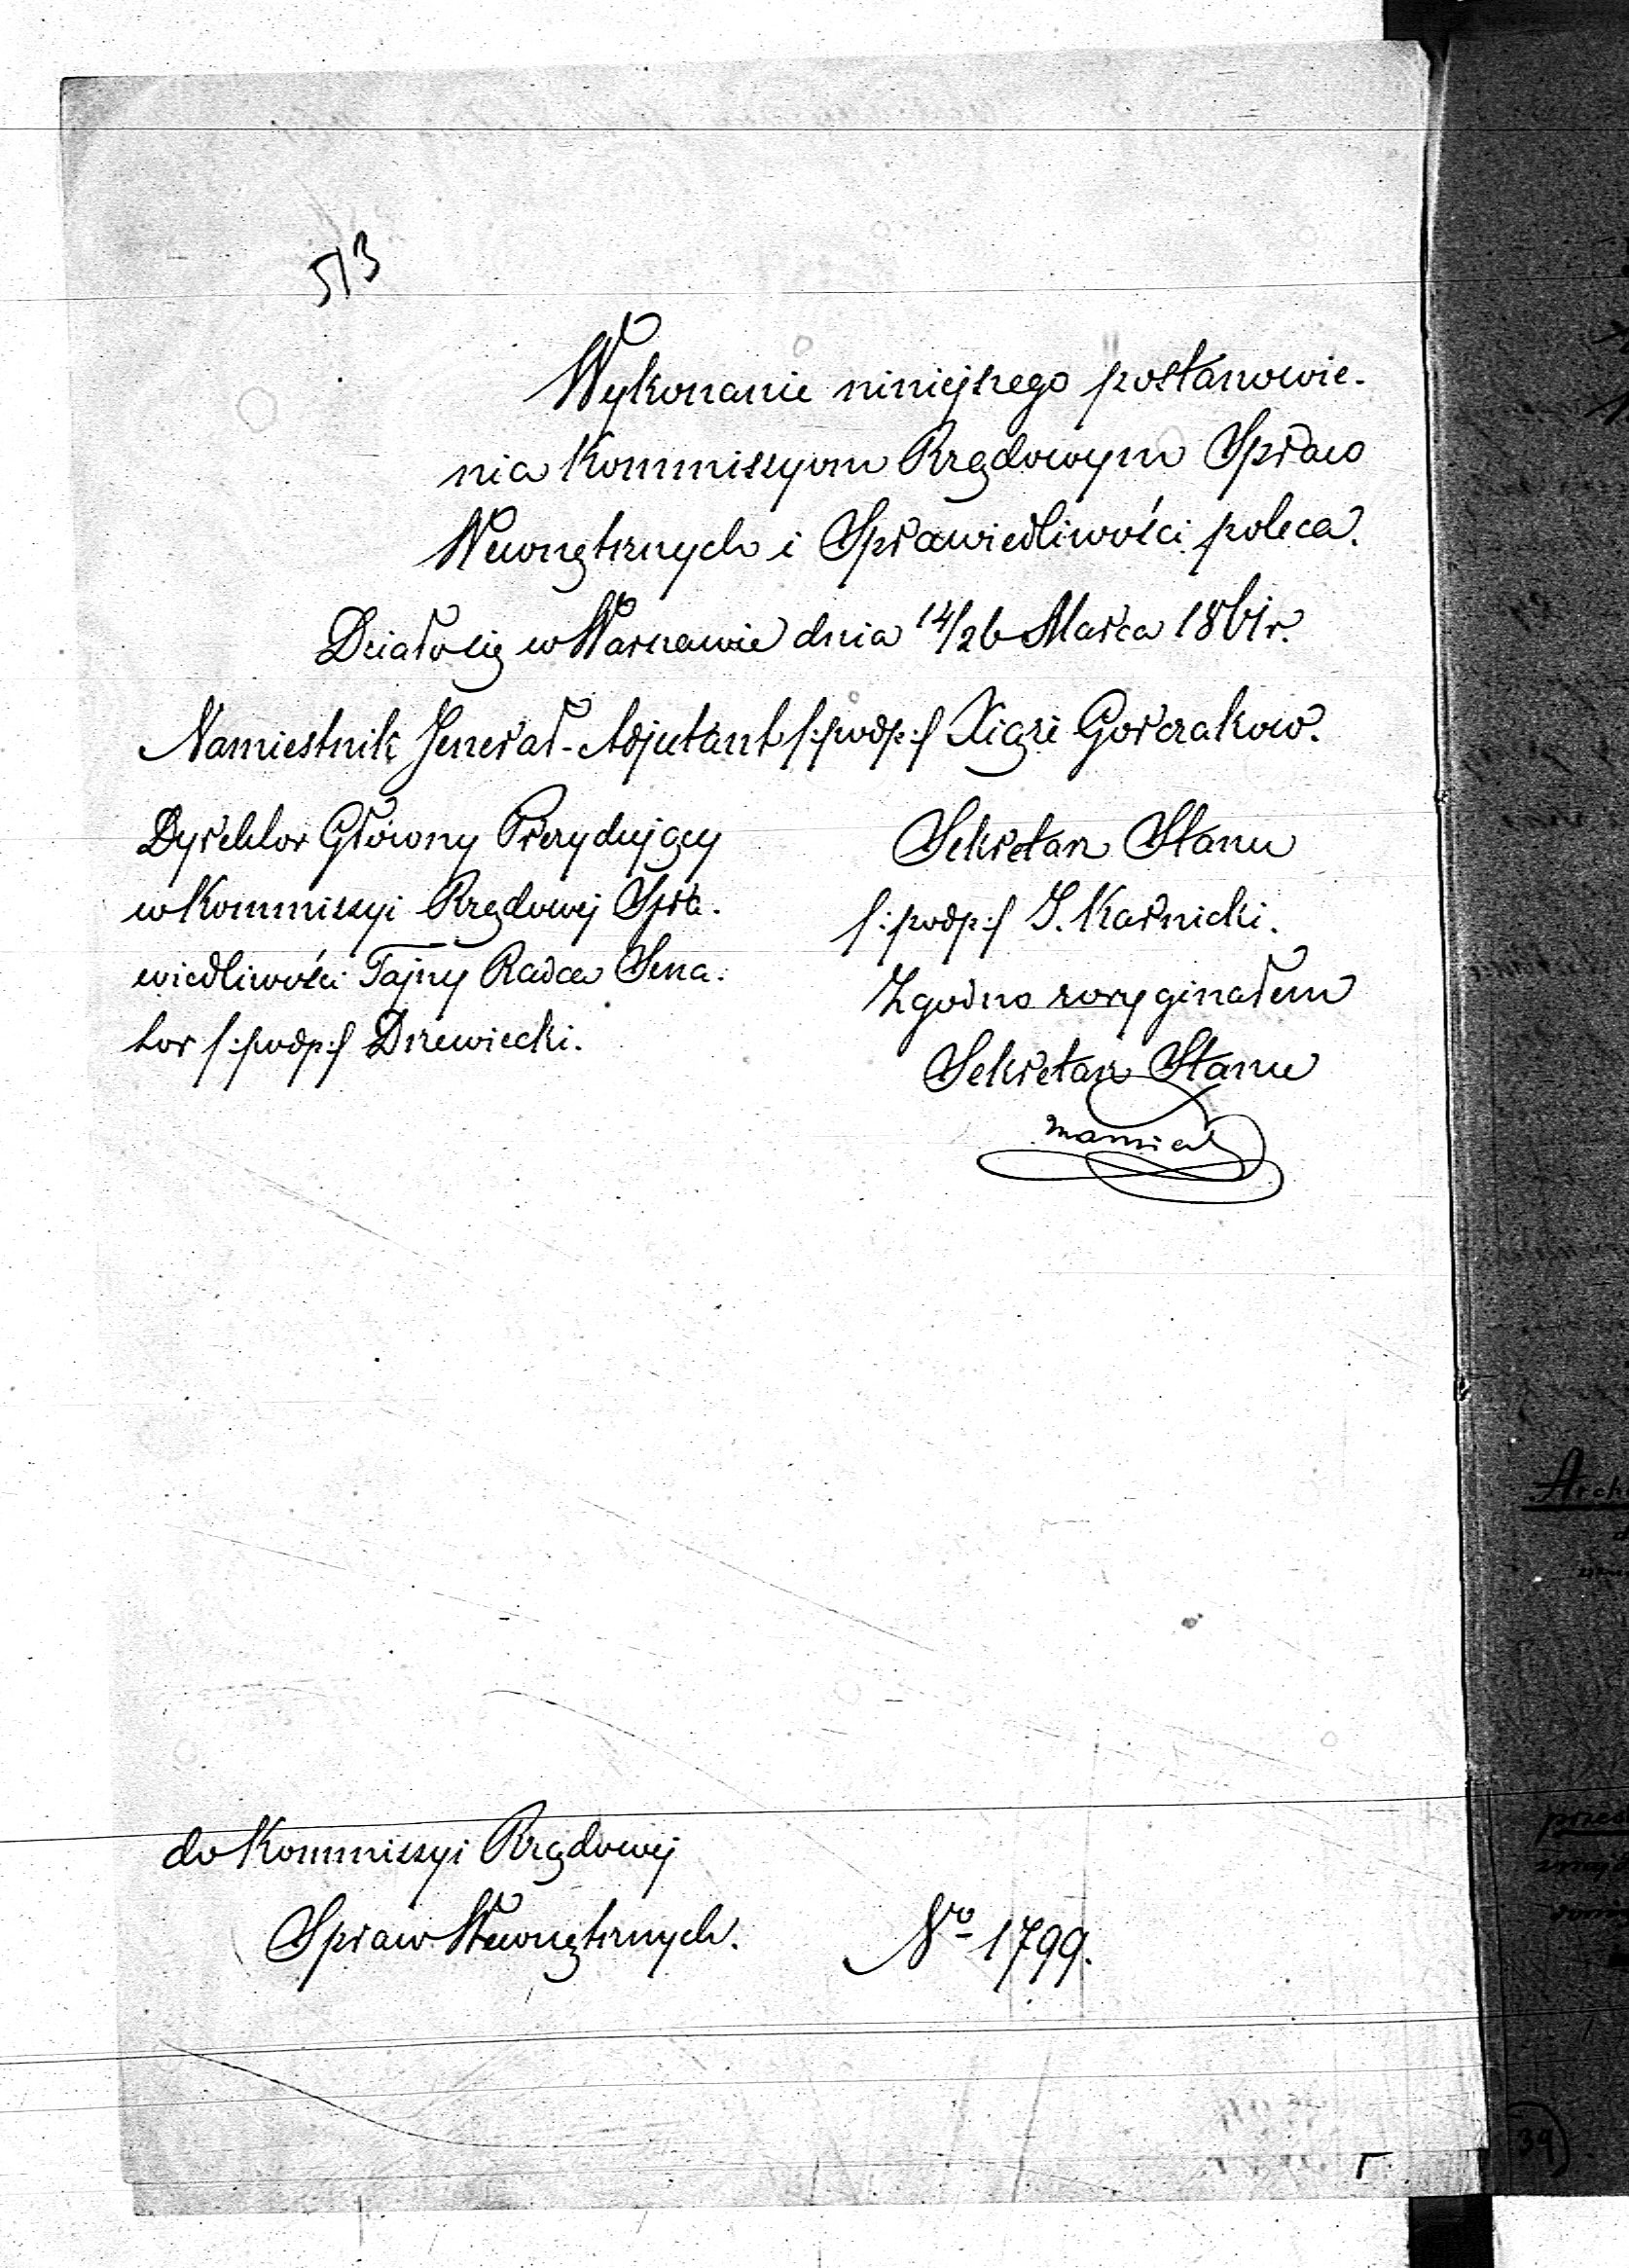 513
Wykonanie niniejszego postanowie-
nia Kommissyom Rządowym Spraw
Wewnętrznych i Sprawiedliwości poleca.
Działo się w Warszawie dnia 14/26 Marca 1861 r.
Namiestnik Jenerał-Adjutant /:podp:/ Xiąże Gorczakow.
Dyrektor Główny Prezydujący
w Kommissyi Rządowej Spra-
wiedliwości Tajny Radca Sena-
tor /:podp:/ Drzewiecki.
Sekretarz Stanu
/:podp:/ J. Karnicki.
Zgodno z oryginałem
Sekretarz Stanu
do Kommissyi Rządowej
Spraw Wewnętrznych.
No 1799.
39